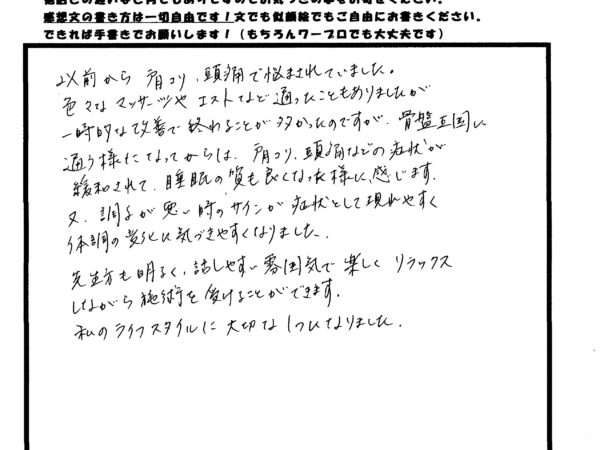 感想文の書き方は一切自由です！文でも似顔絵でもご自由にお書きください。
できれば手書きでお願いします！（もちろんワープロでも大丈夫です）
以前から肩コリ、頭痛で悩まされていました。
色々なマッサージやエステなど通ったこともありましたが
一時的な改善で終わることが多かったのですが、骨盤王国に
通う様になってからは、肩コリ、頭痛などの症状が
緩和されて、睡眠の質も良くなった様に感じます。
又、調子が悪い時のサインが症状として現れやすく
体調の変化に気づきやすくなりました。
先生方も明るく、話しやすい雰囲気で楽しくリラックス
しながら施術を受けることができます。
私のライフスタイルに大切な1つになりました。